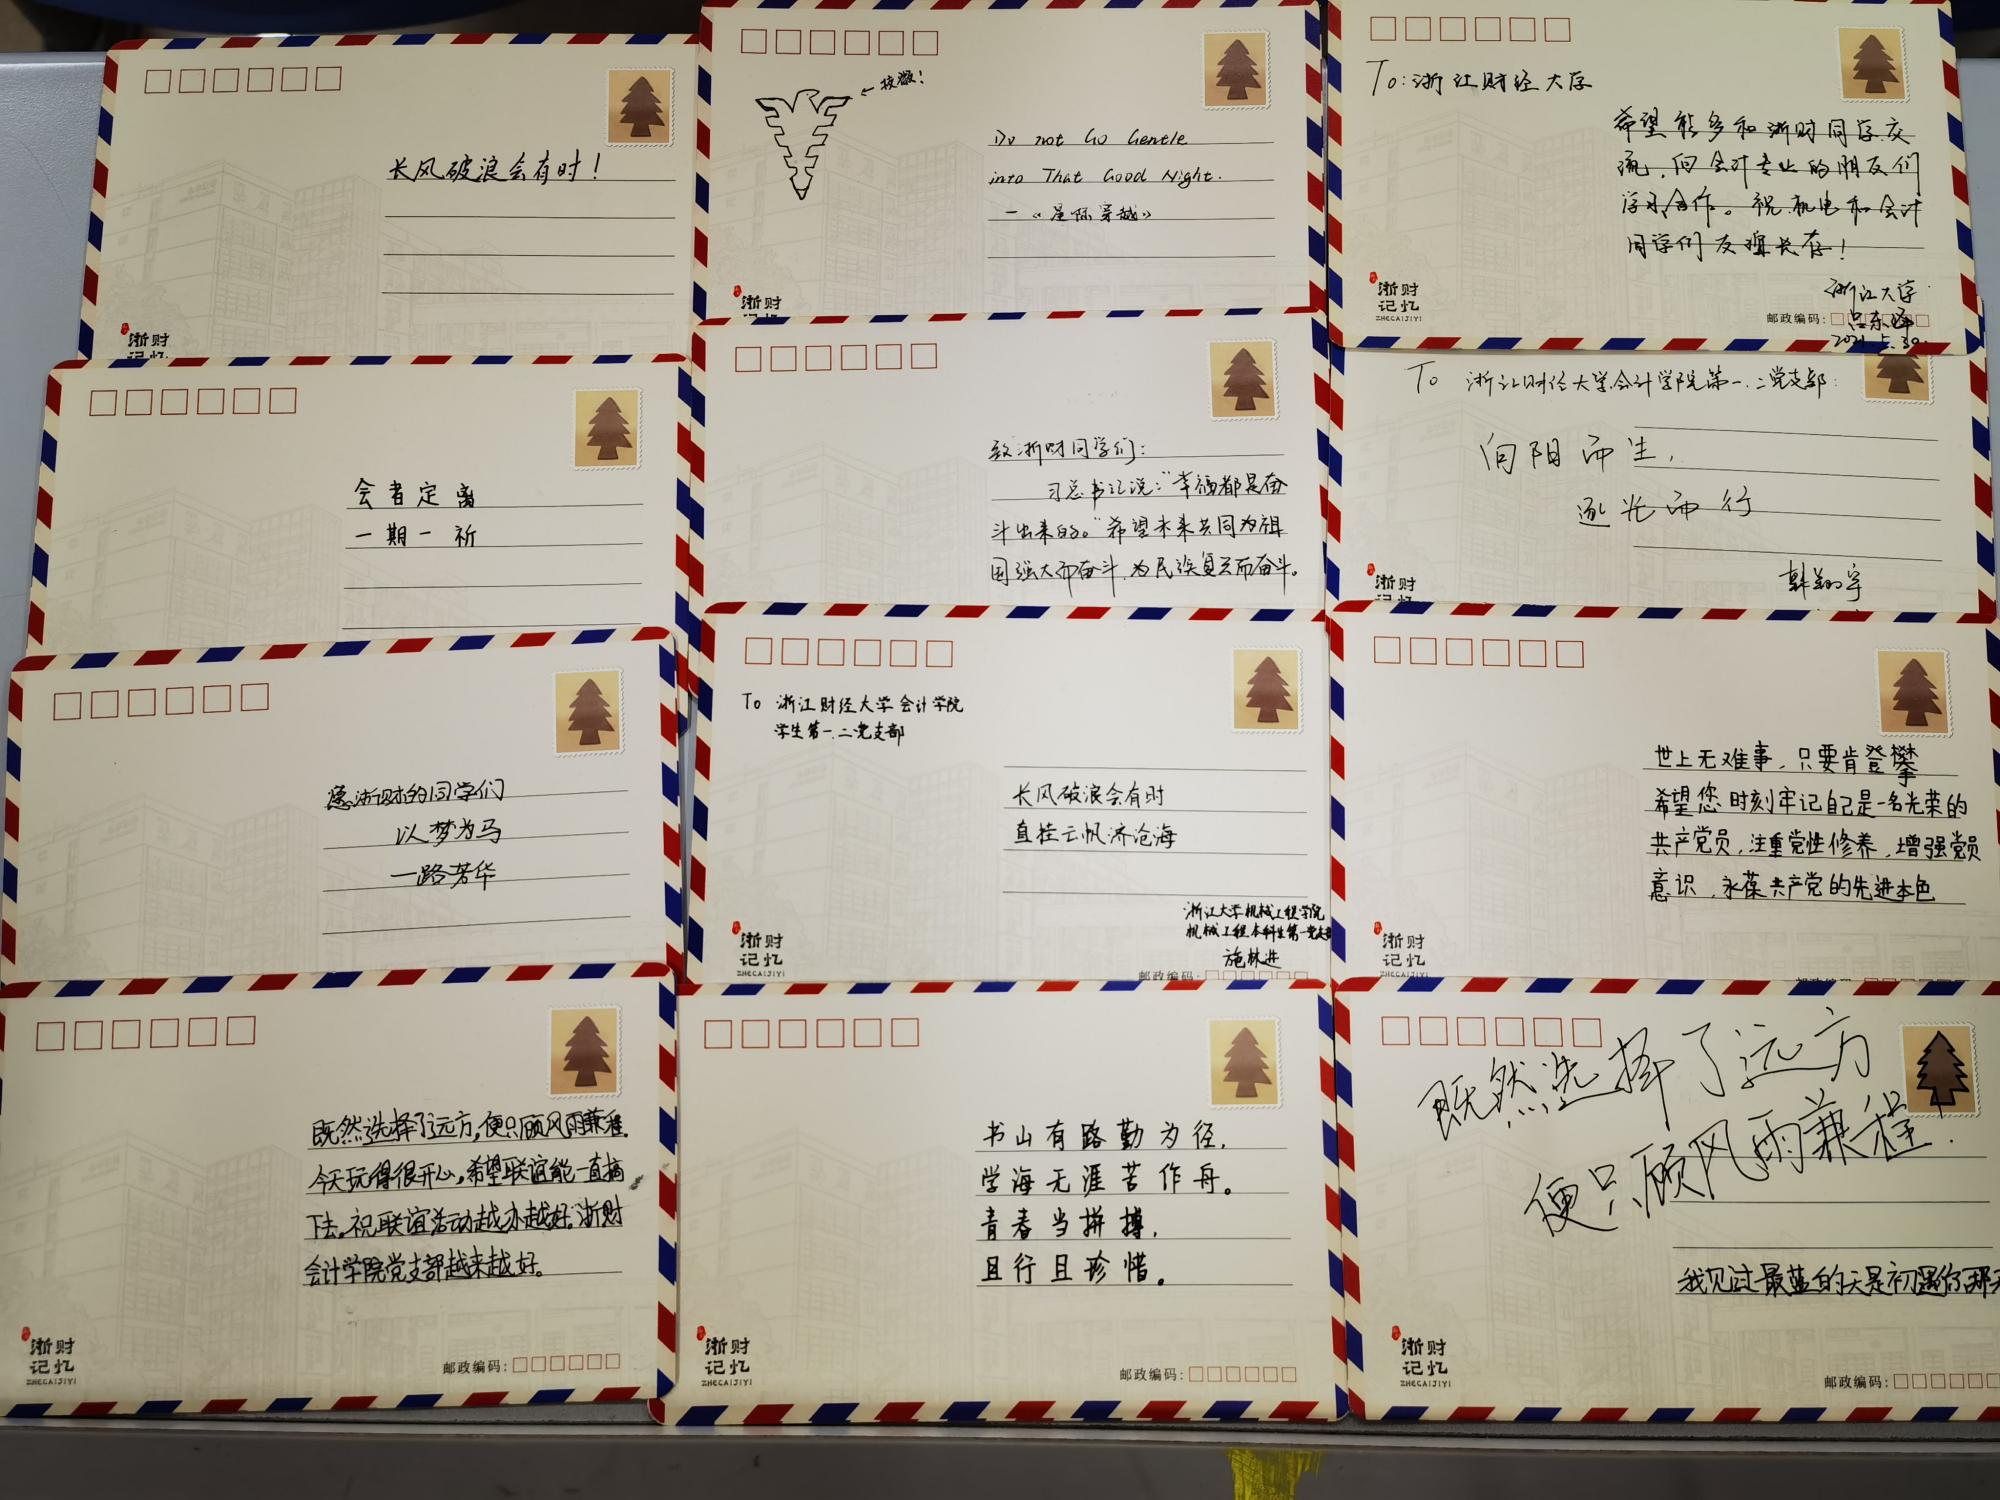 长风破浪会有时！
浙财
记忆
校徽！
Do not Go Gentle
into That Good Night.
—《星际穿越》
浙财
记忆
To：浙江财经大学
希望能多和浙财同学交
流，向会计专业的朋友们
学习合作。祝机电和会计
同学们友谊长存！
浙江大学
2021.5.30.
浙财
记忆
ZHECAIJIYI
邮政编码：
会者定离
一期一祈
致浙财同学们：
习总书记说：“幸福都是奋
斗出来的。”希望未来共同为祖
国强大而奋斗，为民族复兴而奋斗。
To 浙江财经大学会计学院第一、二党支部：
向阳而生，
逐光而行
韩翔宇
浙财
记忆
愿浙财的同学们
以梦为马
一路芳华
To 浙江财经大学会计学院
学生第一、二党支部
长风破浪会有时
直挂云帆济沧海
浙江大学机械工程学院
机械工程本科生第一党支部
施林进
浙财
记忆
ZHECAIJIYI
邮政编码：
世上无难事，只要肯登攀
希望您时刻牢记自己是一名光荣的
共产党员，注重党性修养，增强党员
意识，永葆共产党的先进本色
浙财
记忆
ZHECAIJIYI
邮政编码：
既然选择了远方，便只顾风雨兼程。
今天玩得很开心，希望联谊能一直搞
下去。祝联谊活动越办越好。浙财
会计学院党支部越来越好。
浙财
记忆
ZHECAIJIYI
邮政编码：
书山有路勤为径，
学海无涯苦作舟。
青春当拼搏，
且行且珍惜。
浙财
记忆
ZHECAIJIYI
邮政编码：
既然选择了远方
便只顾风雨兼程！
我见过最蓝的天是初遇你那天
浙财
记忆
ZHECAIJIYI
邮政编码：